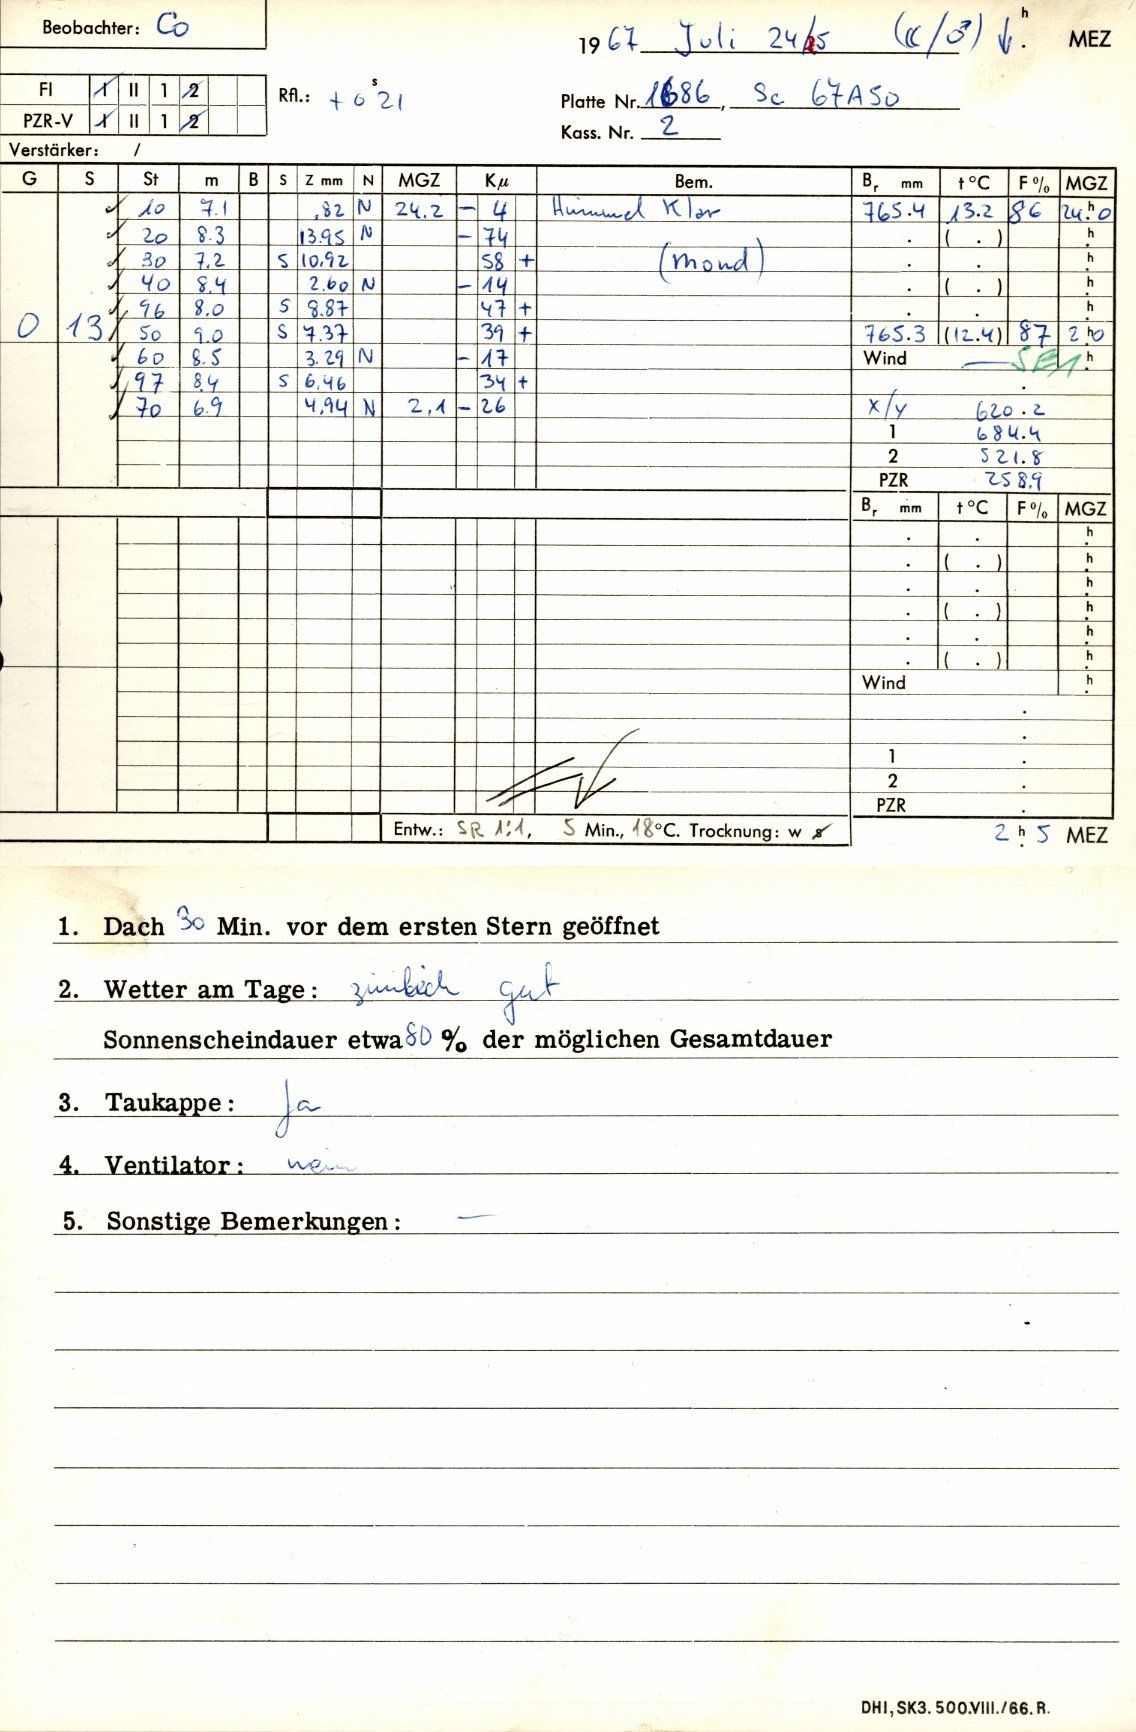 Beobachter: Co
1967 Juli 24/25 (☾/♂) ↓ h. MEZ
FI I II 1 2
Rfl.: + 0 s 21
PZR-V I II 1 2
Platte Nr. 1686, Sc 67A50
Kass. Nr. 2
Verstärker: /
G S St m B S Z mm N MGZ Kµ Bem. Br mm t °C F % MGZ
10 7.1 .82 N 24.2 - 4 Himmel Klar 765.4 13.2 86 24.h0
20 8.3 13.95 N - 74 . ( . ) h
30 7.2 S 10.92 58 + (Mond) . . h
40 8.4 2.60 N - 14 . ( . ) h
96 8.0 S 8.87 47 + . . h
0 13 50 9.0 S 7.37 39 + 765.3 (12.4) 87 2 h0
60 8.5 3.29 N - 17 Wind SE1 h
97 8.4 S 6.46 34 +
70 6.9 4.94 N 2.1 - 26 x/y 620.2
1 684.4
2 521.8
PZR 258.9
Br mm t °C F % MGZ
. . h
. ( . ) h
. . h
. ( . ) h
. . h
. ( . ) h
Wind h
1 .
2 .
PZR .
Entw.: SR 1:1, 5 Min., 18°C. Trocknung: w s
2 h. 5 MEZ
1. Dach 30 Min. vor dem ersten Stern geöffnet
2. Wetter am Tage: zimlich gut
Sonnenscheindauer etwa 80 % der möglichen Gesamtdauer
3. Taukappe: Ja
4. Ventilator: nein
5. Sonstige Bemerkungen: —
DHI, SK3. 500.VIII./66. R.